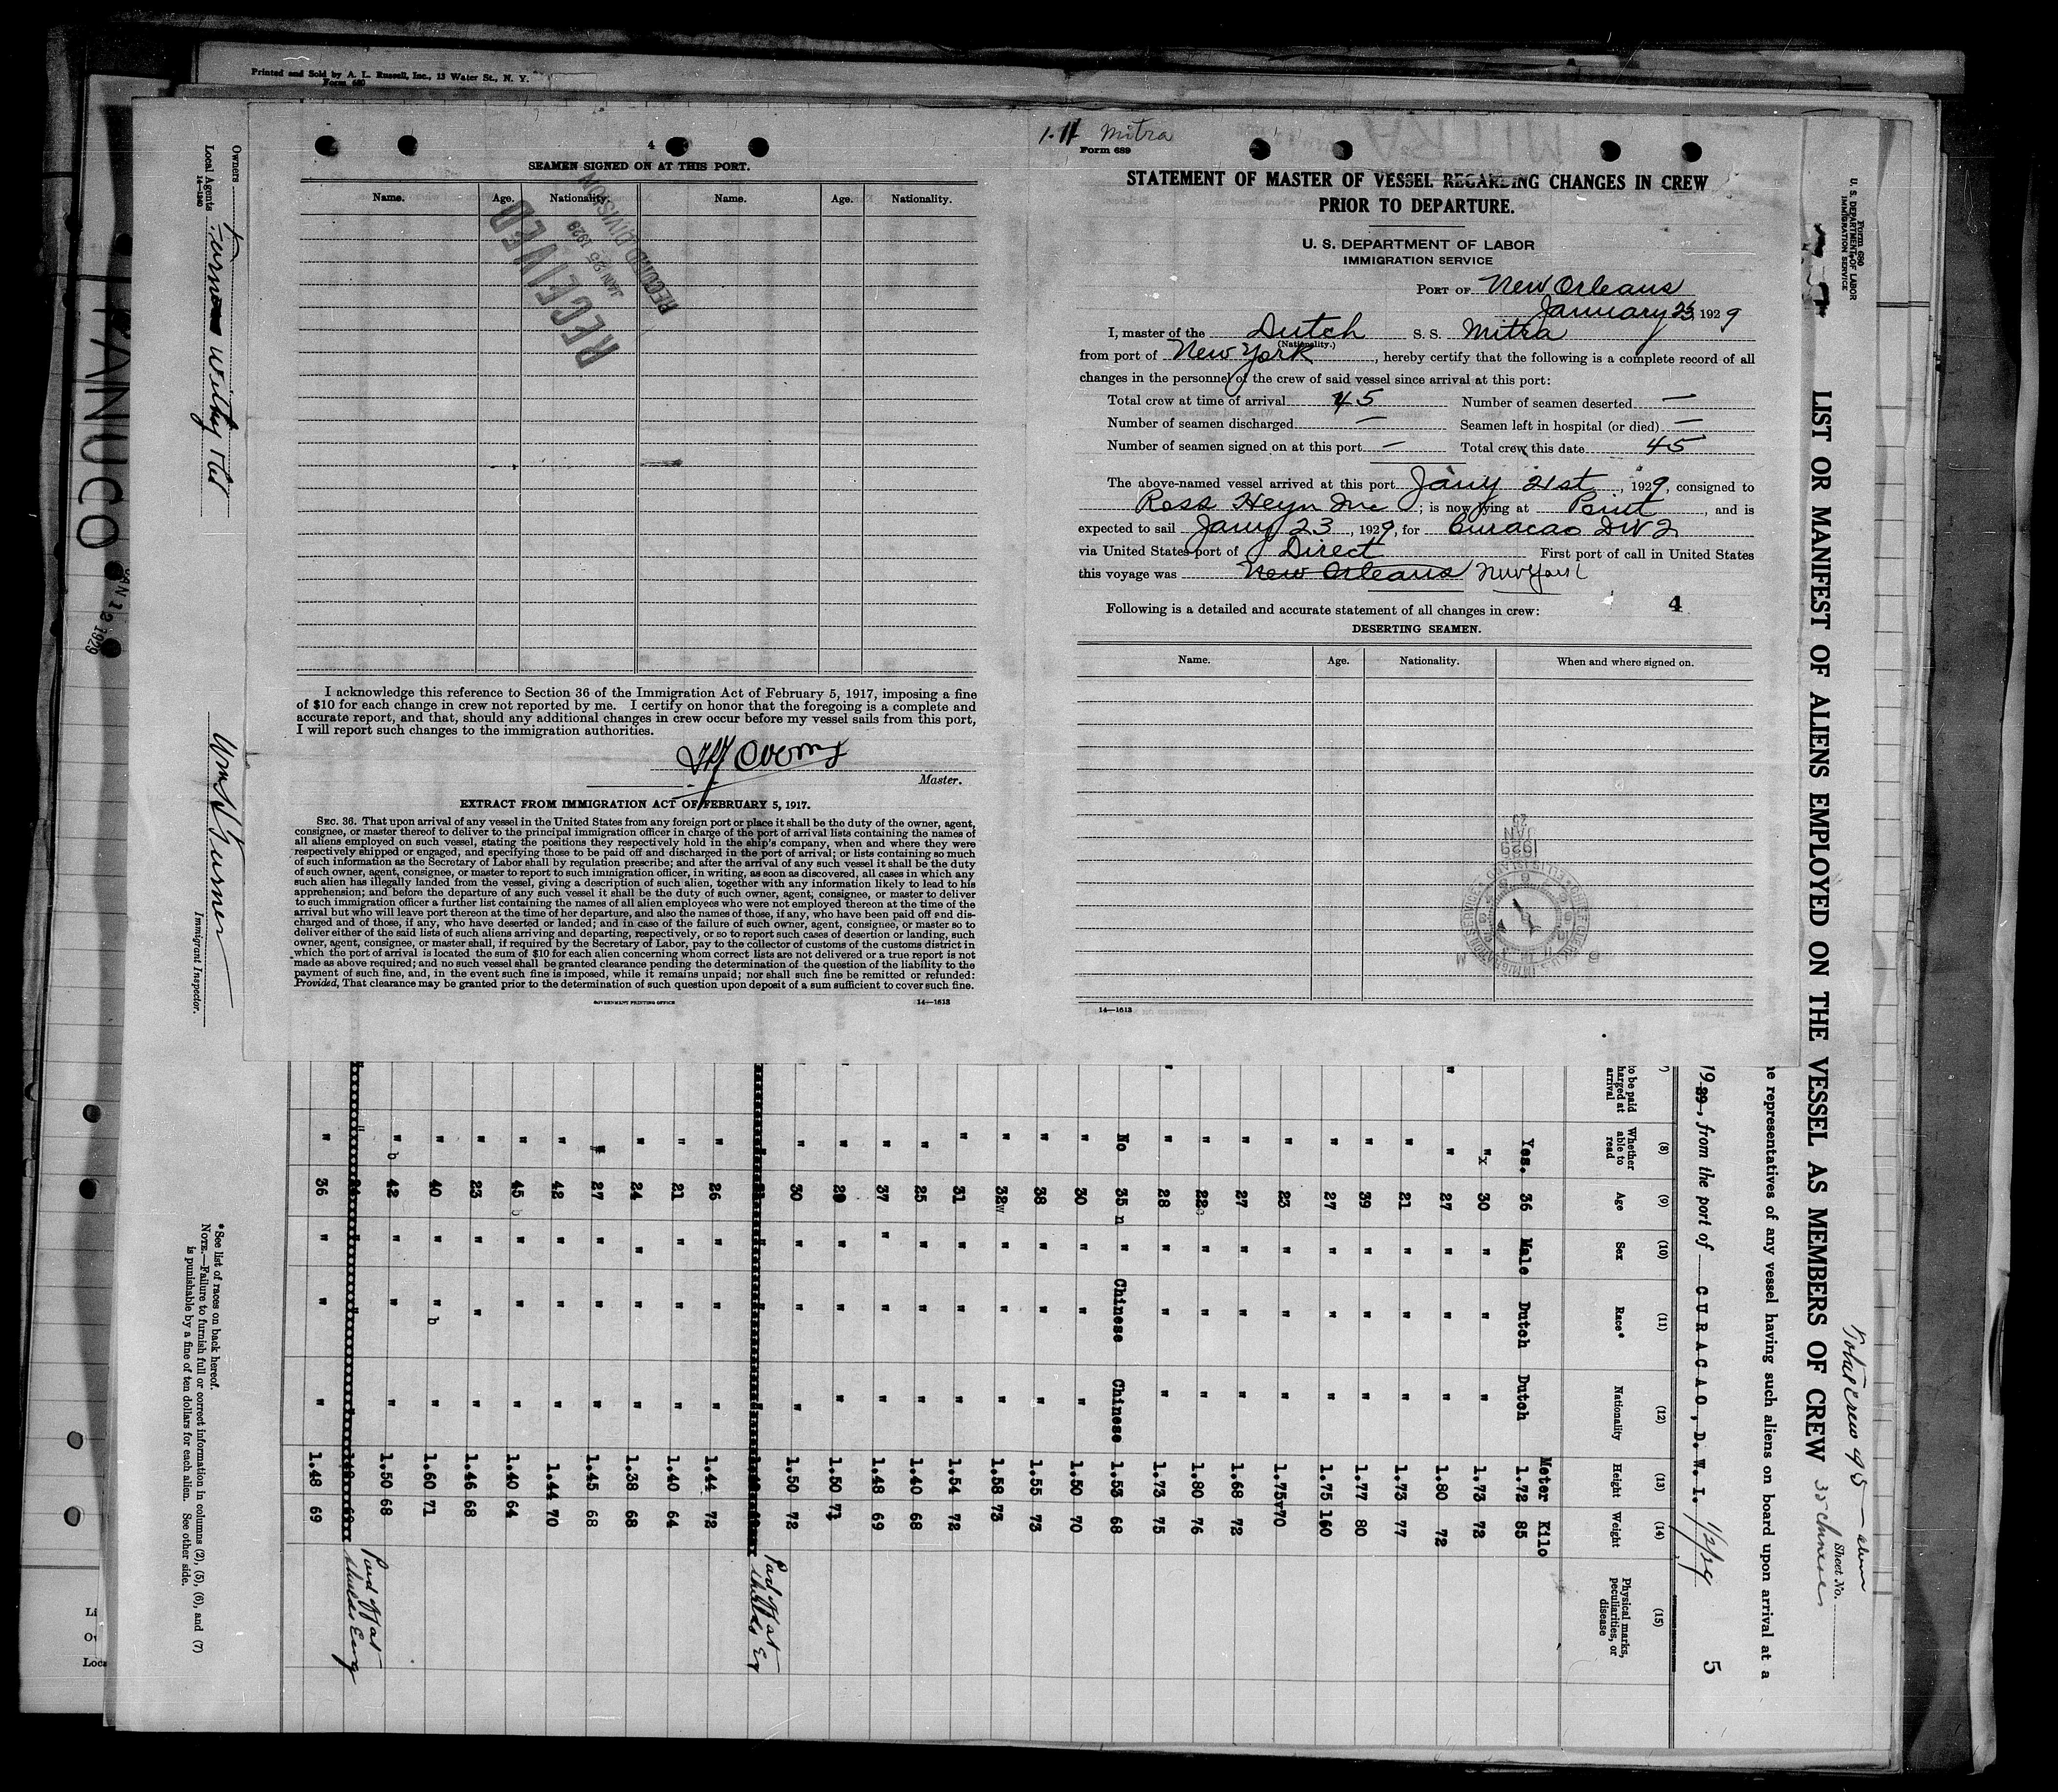 Printed and Sold by A. L. Russell, Inc., 13 Water St., N. Y.
Form 680
PANUCO
JAN 12 1929
Owners
Local Agents Furness Withy Ltd
14—1240
Wm H Turner
Immigrant Inspector.
4
SEAMEN SIGNED ON AT THIS PORT.
Name. Age. Nationality. Name. Age. Nationality.
RECEIVED
JAN 25 1929
RECORD DIVISON
I acknowledge this reference to Section 36 of the Immigration Act of February 5, 1917, imposing a fine
of $10 for each change in crew not reported by me. I certify on honor that the foregoing is a complete and
accurate report, and that, should any additional changes in crew occur before my vessel sails from this port,
I will report such changes to the immigration authorities.
Master.
EXTRACT FROM IMMIGRATION ACT OF FEBRUARY 5, 1917.
SEC. 36. That upon arrival of any vessel in the United States from any foreign port or place it shall be the duty of the owner, agent,
consignee, or master thereof to deliver to the principal immigration officer in charge of the port of arrival lists containing the names of
all aliens employed on such vessel, stating the positions they respectively hold in the ship's company, when and where they were
respectively shipped or engaged, and specifying those to be paid off and discharged in the port of arrival; or lists containing so much
of such information as the Secretary of Labor shall by regulation prescribe; and after the arrival of any such vessel it shall be the duty
of such owner, agent, consignee, or master to report to such immigration officer, in writing, as soon as discovered, all cases in which any
such alien has illegally landed from the vessel, giving a description of such alien, together with any information likely to lead to his
apprehension; and before the departure of any such vessel it shall be the duty of such owner, agent, consignee, or master to deliver
to such immigration officer a further list containing the names of all alien employees who were not employed thereon at the time of the
arrival but who will leave port thereon at the time of her departure, and also the names of those, if any, who have been paid off and dis-
charged and of those, if any, who have deserted or landed; and in case of the failure of such owner, agent, consignee, or master so to
deliver either of the said lists of such aliens arriving and departing, respectively, or so to report such cases of desertion or landing, such
owner, agent, consignee, or master shall, if required by the Secretary of Labor, pay to the collector of customs of the customs district in
which the port of arrival is located the sum of $10 for each alien concerning whom correct lists are not delivered or a true report is not
made as above required; and no such vessel shall be granted clearance pending the determination of the question of the liability to the
payment of such fine, and, in the event such fine is imposed, while it remains unpaid; nor shall such fine be remitted or refunded:
Provided, That clearance may be granted prior to the determination of such question upon deposit of a sum sufficient to cover such fine.
GOVERNMENT PRINTING OFFICE 14—1613
Mitra
Form 689
STATEMENT OF MASTER OF VESSEL REGARDING CHANGES IN CREW
PRIOR TO DEPARTURE.
U. S. DEPARTMENT OF LABOR
IMMIGRATION SERVICE
PORT OF New Orleans
January 23, 1929
I, master of the Dutch S. S. Mitra
(Nationality.)
from port of New York, hereby certify that the following is a complete record of all
changes in the personnel of the crew of said vessel since arrival at this port:
Total crew at time of arrival 45 Number of seamen deserted —
Number of seamen discharged — Seamen left in hospital (or died) —
Number of seamen signed on at this port — Total crew this date 45
The above-named vessel arrived at this port Jany 21st, 1929, consigned to
Ross Heyn Inc; is now lying at Point, and is
expected to sail Jany 23, 1929, for Curacao DWI
via United States port of Direct First port of call in United States
this voyage was New Orleans New York
Following is a detailed and accurate statement of all changes in crew: 4
DESERTING SEAMEN.
Name. Age. Nationality. When and where signed on.
1929
JAN
25
14—1613
Form 680
U. S. DEPARTMENT OF LABOR
IMMIGRATION SERVICE
LIST OR MANIFEST OF ALIENS EMPLOYED ON THE VESSEL AS MEMBERS OF CREW
Total Crew 45
35 Chinese
Sheet No.
he representatives of any vessel having such aliens on board upon arrival at a
1929, from the port of CURACAO, D. W. I. 5
to be paid
harged at
arrival
(8) Whether able to read
(9) Age
(10) Sex
(11) Race*
(12) Nationality
(13) Height
(14) Weight
(15) Physical marks, peculiarities, or disease
Meter Kilo
Yes. 36 Male Dutch Dutch 1.72 85
"x 30 " " " 1.73 72
" 27 " " " 1.80 72
" 21 " " " 1.73 77
" 39 " " " 1.77 80
" 27 " " " 1.75 160
" 23 " " " 1.75 70
" 27 " " " 1.68 72
" 22 " " " 1.80 76
" 28 " " " 1.73 75
No 35 " Chinese Chinese 1.53 68
" 30 " " " 1.50 70
" 38 " " " 1.55 73
" 32 " " " 1.58 73
" 31 " " " 1.54 72
" 25 " " " 1.40 68
" 37 " " " 1.48 69
" 29 " " " 1.50 71
" 30 " " " 1.50 72
Paid off at Shields Eng
" 26 " " " 1.44 72
" 21 " " " 1.40 64
" 24 " " " 1.38 68
" 27 " " " 1.45 68
" 42 " " " 1.44 70
" 45 " " " 1.40 64
" 23 " " " 1.46 68
" 40 " " " 1.60 71
" 42 " " " 1.50 68
Paid off at Shields Eng
" 36 " " " 1.48 69
*See list of races on back hereof.
NOTE.—Failure to furnish full or correct information in columns (2), (5), (6), and (7)
is punishable by a fine of ten dollars for each alien. See other side.